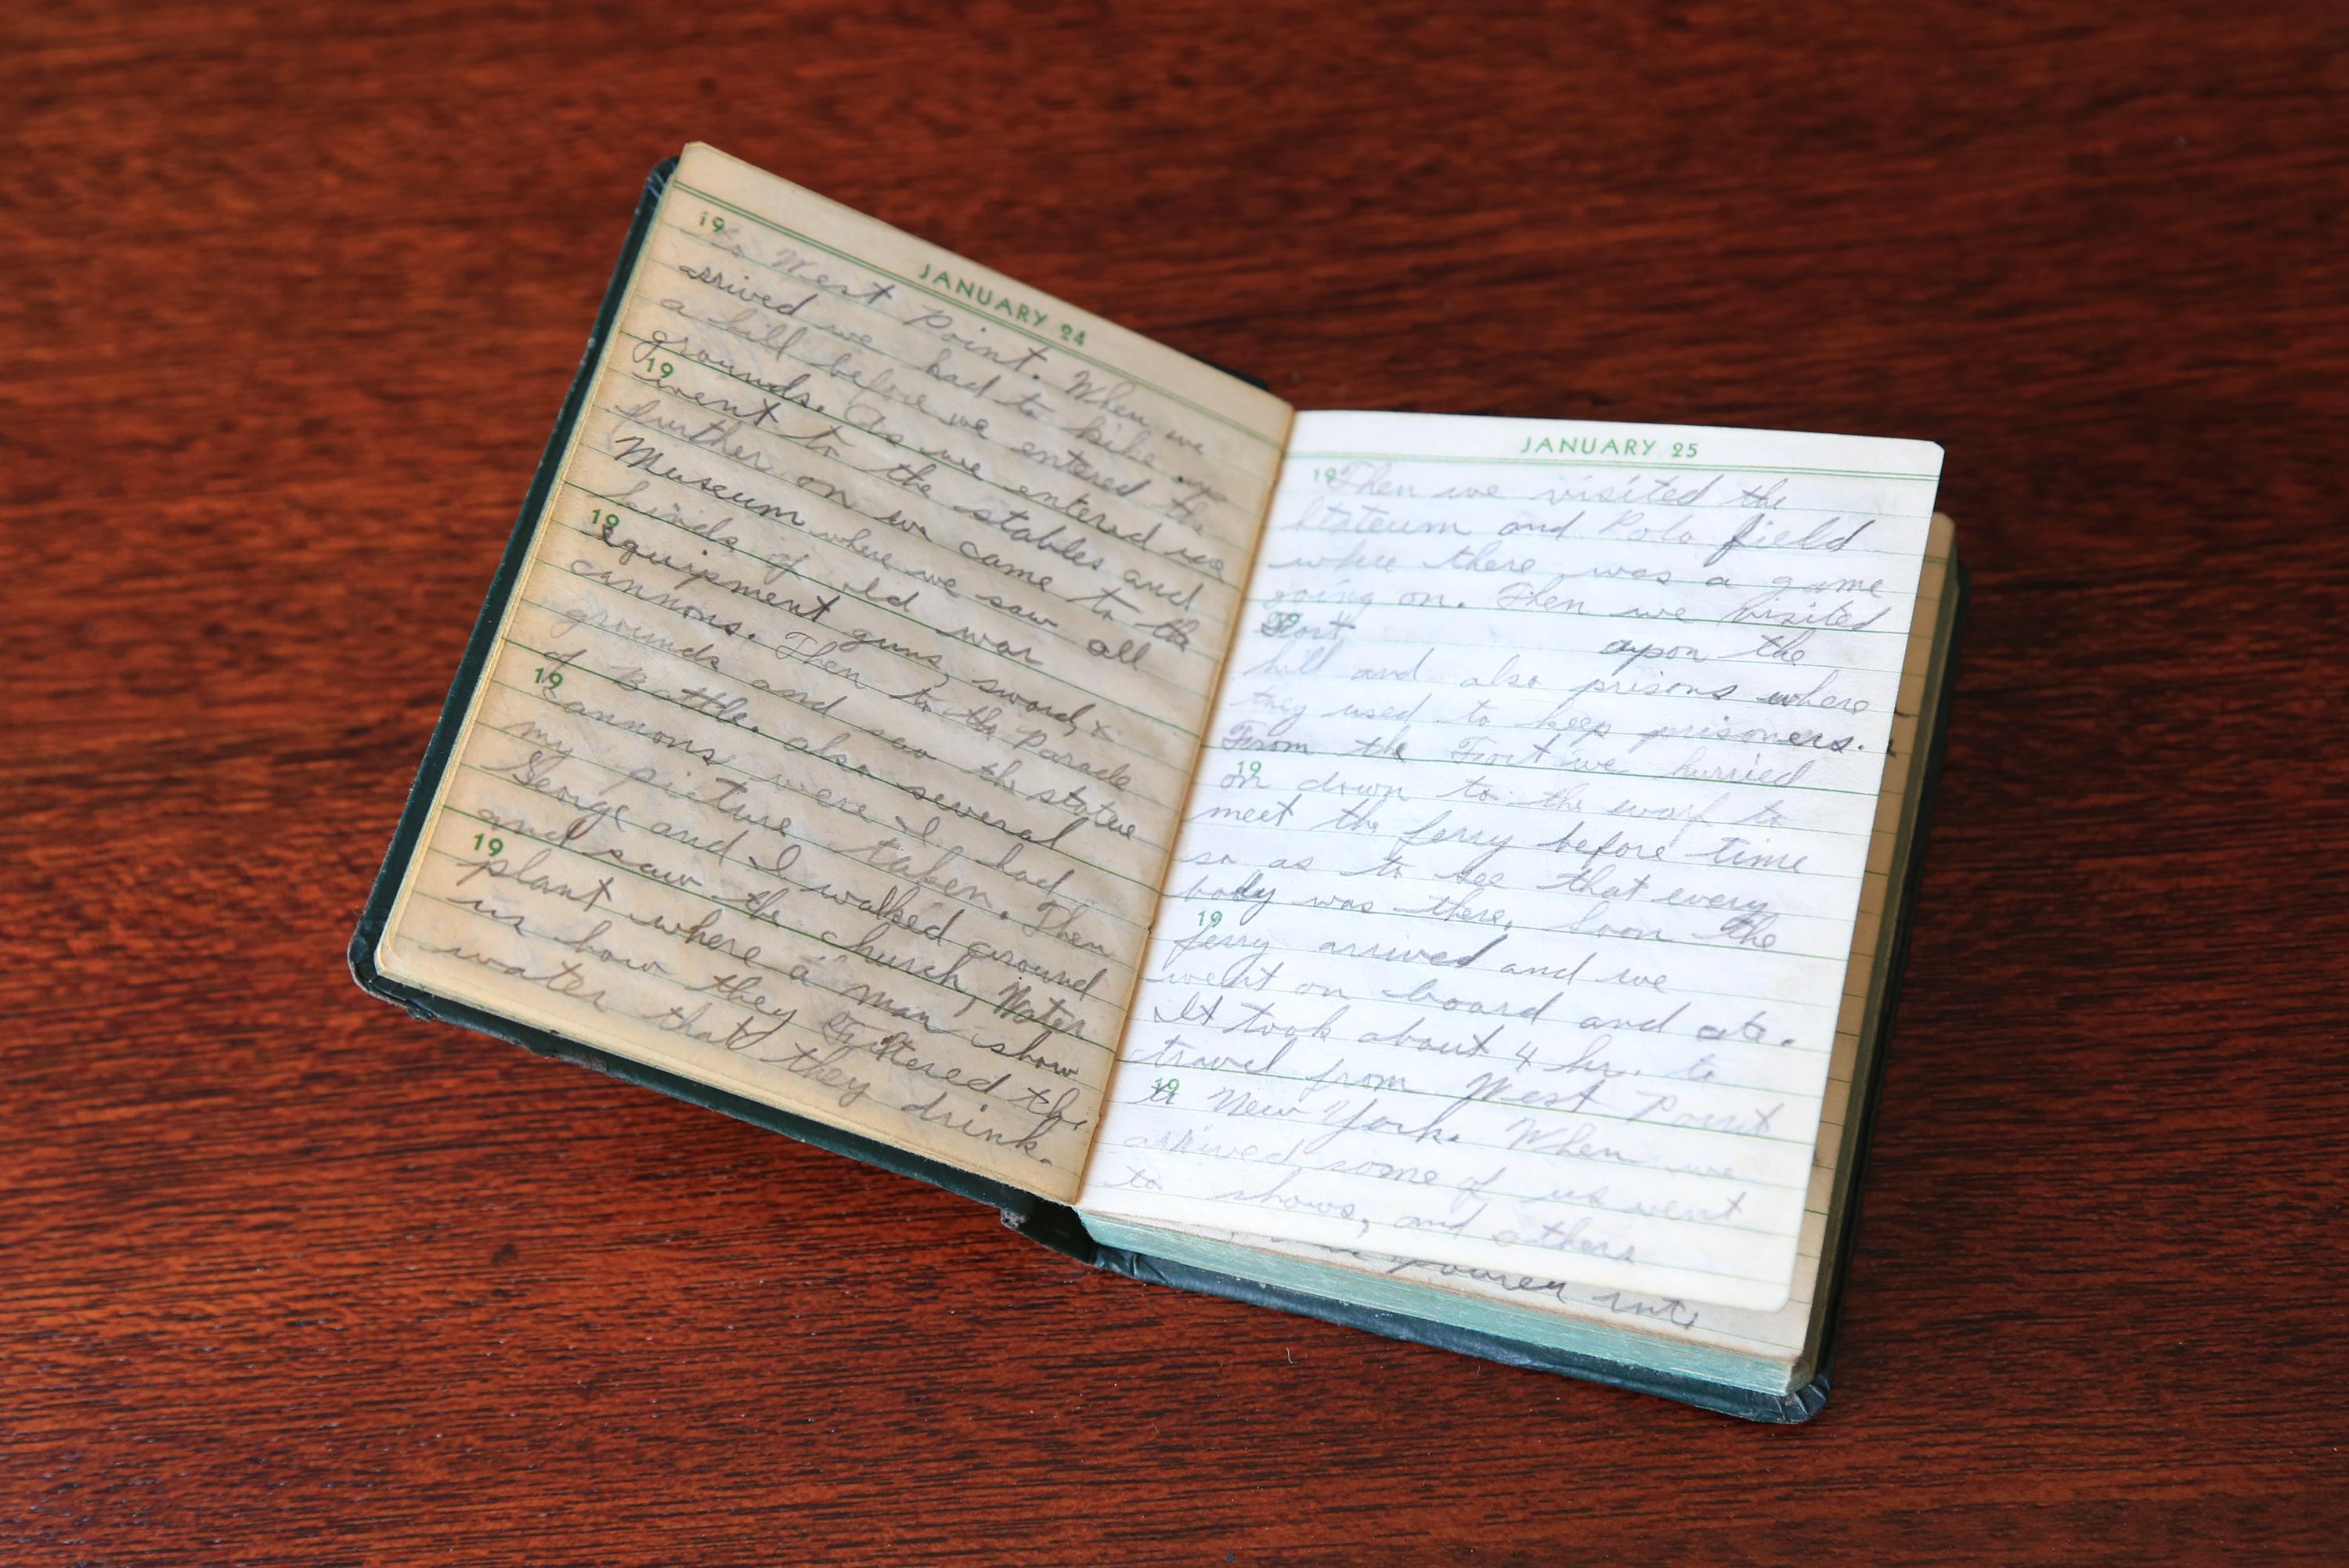 JANUARY 24
19 to West Point. When we
arrived we had to hike up
a hill before we entered the
grounds. As we entered we
19
went to the stables and
further on we came to the
Museum where we saw all
kinds of old war
19
equipment guns, sword,
cannons. Then to the Parade
grounds and saw the statue
of Battle. also several
19
cannons, were I had
my picture taken. Then
George and I walked around
and saw the church, Water
19
plant where a man show
us how they Filtered the
water that they drink.
JANUARY 25
19 Then we visited the
and Polo field
where there was a game
going on. Then we visited
Fort upon the
hill and also prisons where
they used to keep prisoners.
From the Fort we hurried
19
on down to the warf to
meet the ferry before time
so as to see that every
body was there. Soon the
19
ferry arrived and we
went on board and ate.
It took about 4 hr. to
travel from West Point
19
to New York. When we
arrived some of us went
to shows, and others
into